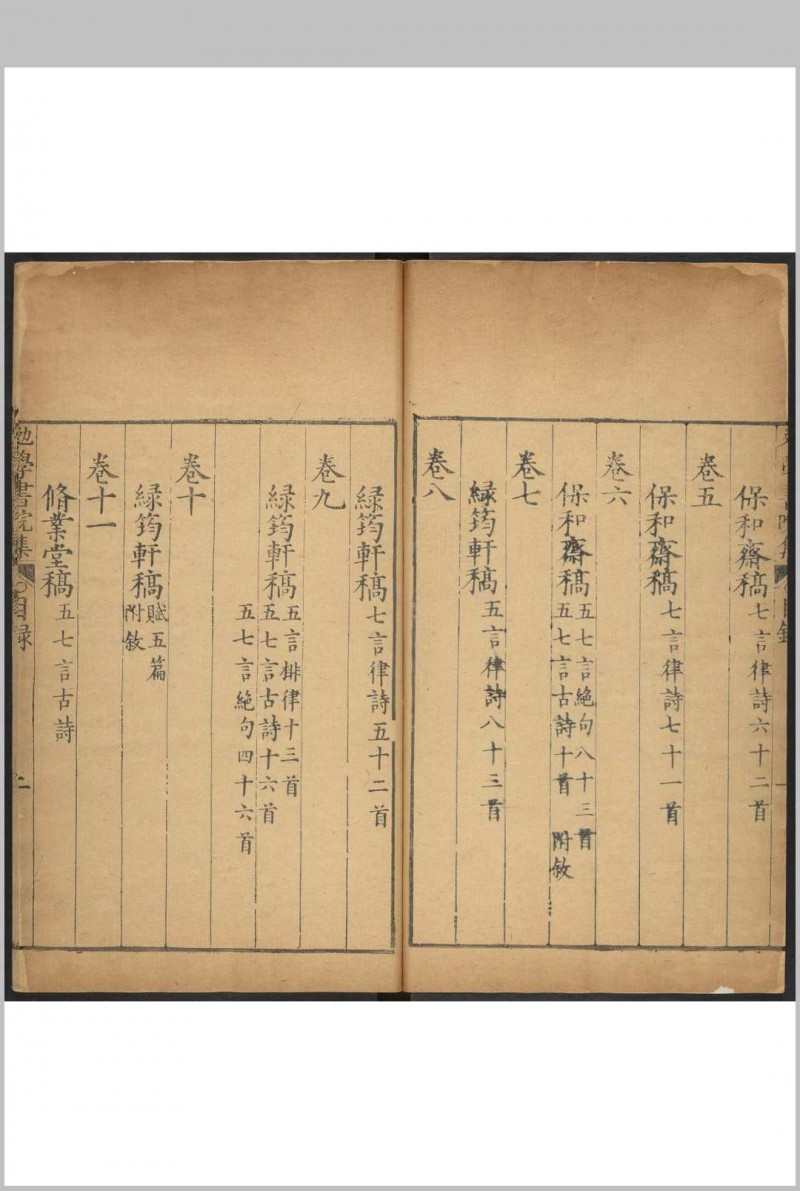 保和齋稿七言律詩六十二首
卷五
保和齋稿七言律詩七十一首
卷六
保和齋稿五七言絕句八十三首
五七言古詩十首 附敘
卷七
緑筠軒稿五言律詩八十三首
卷八
緑筠軒稿七言律詩五十二首
卷九
緑筠軒稿五言排律十三首
五七言古詩十六首
五七言絕句四十六首
卷十
緑筠軒稿賦五篇
附敘
卷十一
脩業堂稿五七言古詩
勉學書院集 目録 二